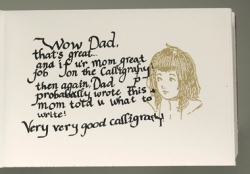 Wow Dad,
that's great
and if ur mom great
job on the Calligraphy
then again, Dad
probably wrote this a
mom told u what to
write!
Very very good calligraphy